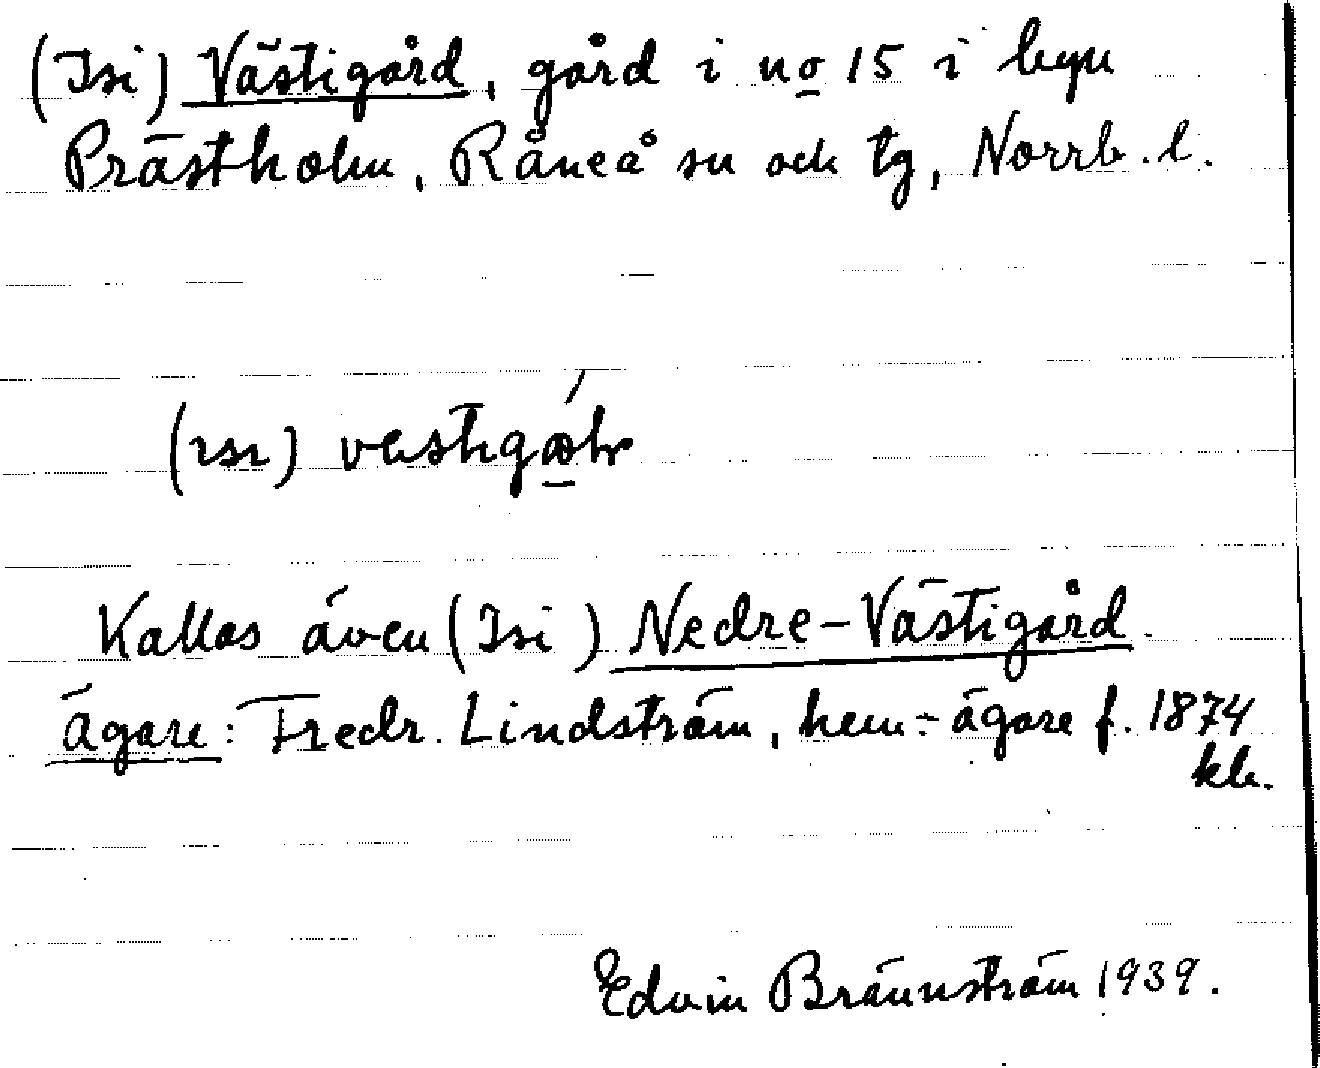 (Isi) Västigård, gård i no 15 i byn
Prästholm, Råneå sn och tg, Norrb. l.
(ısı) vestıgǻɷlv
Kallas även (Isi) Nedre-Västigård.
Ägare: Fredr. Lindström, hem:-ägare f. 1874
kb.
Edvin Brännström 1939.